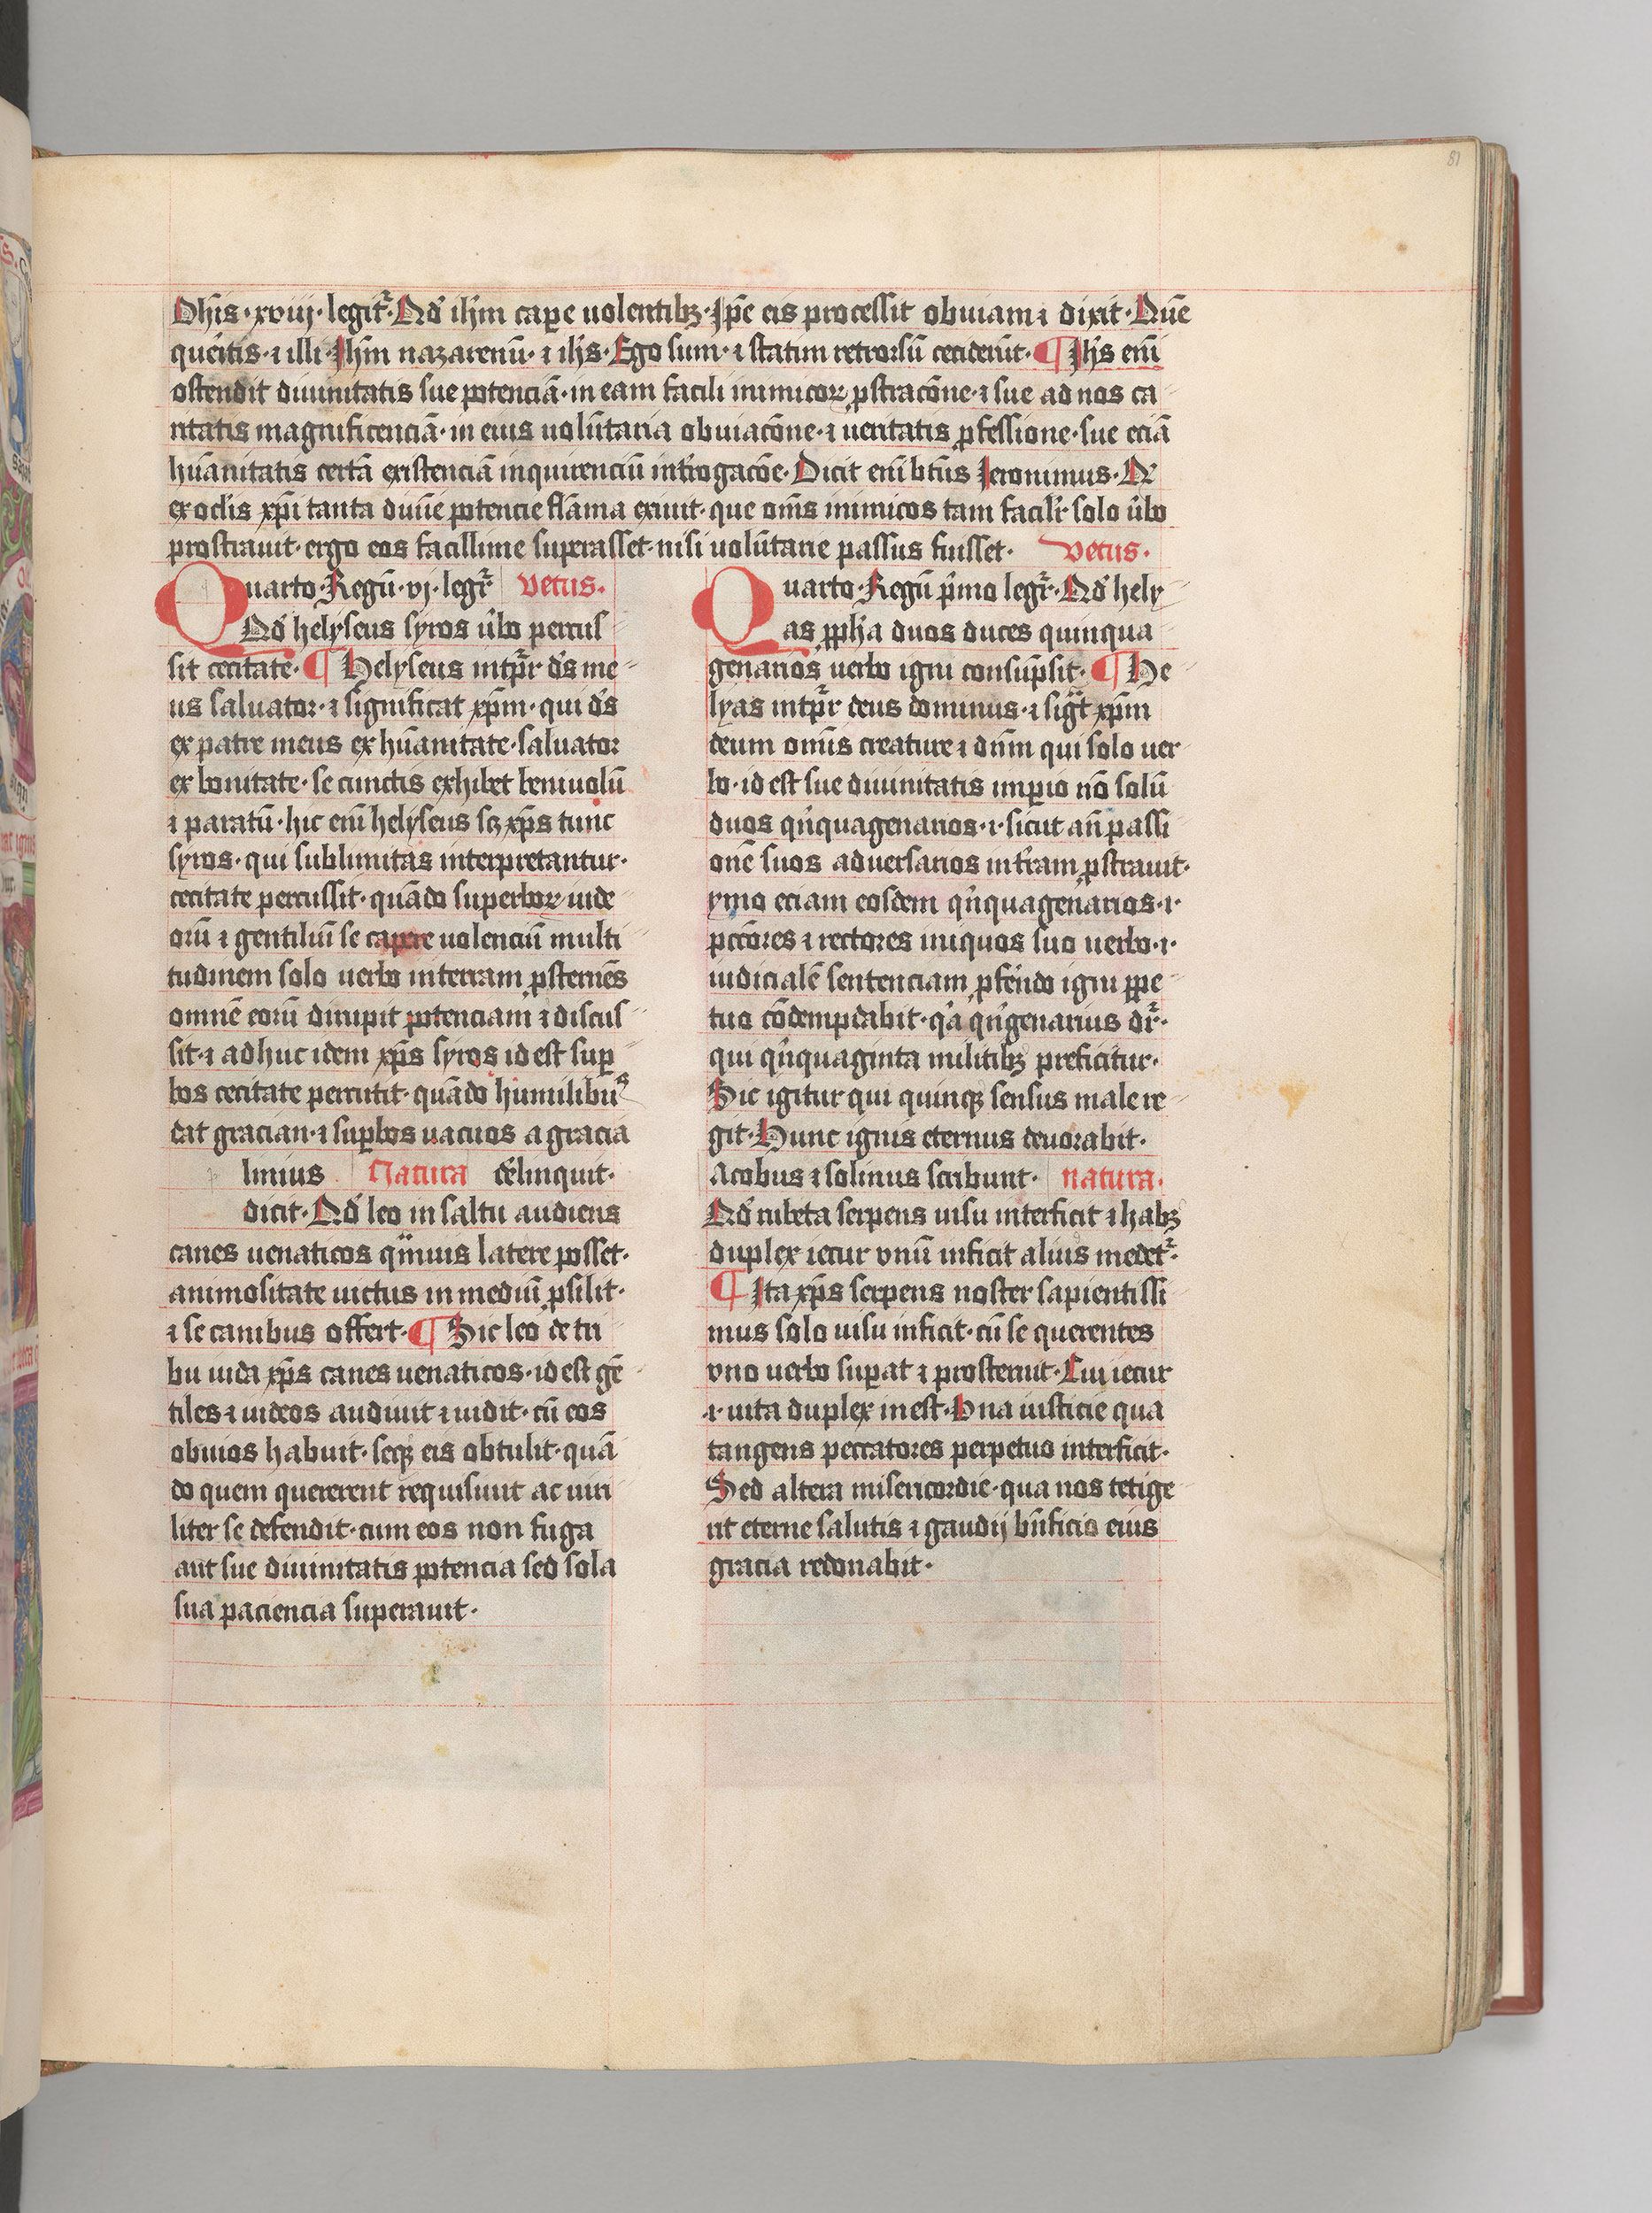 81
Ohis · xviij · legit᷑ · Qđ ihm̄ cap̲e uolentibꝫ · Ip̄e eis processit obuiam ⁊ dixit · Quē
queritis · ⁊ illi · Ihm̄ nazarenū · ⁊ ih̄s · Ego sum · ⁊ statim retrorsū ceciderūt · ¶ Ih̄s enī
ostendit diuinitatis sue potenciā · in eam facili inimicoꝝ ꝓstracōne · ⁊ sue ad nos ca
ritatis magnificenciā · in eius uolūtaria obuiacōne · ⁊ ueritatis ꝓfessione · sue eciā
hūanitatis certā existenciā inquirenciū int̓rogacōe · Dicit enī btūs Ieronimus · Qđ
ex oc̄lis xp̄i tanta diuīe potencie flāma exiuit · que om̄s inimicos tam facilr̓ solo u̓bo
prostrauit · ergo eos facillime sup̲asset · nisi uolūtarie passus fuisset · Vetus ·
Quarto · Regū · vj · legr᷑ Vetus ·
Qđ helyseus syros u̓bo percus
sit cecitate · ¶ Helyseus intp̲r᷑ ds̓ me
us saluator · ⁊ significat xp̄m · qui ds̓
ex patre meus ex hūanitate · saluator
ex bonitate · se cunctis exhibet beniuolū
⁊ paratū · hic enī helyseus sꝫ xp̄s tunc
syros · qui sublimitas interpretantur ·
cecitate percussit · quādo superboꝝ iude
orū ⁊ gentiliū se capere uolenciū multi
tudinem solo uerbo interram ꝓsternēs
omnē eorū dirupit potenciam ⁊ discus
sit · ⁊ adhuc idem xp̄s syros id est sup̲
bos cecitate percutit · quādo humilibus
dat gracian · ⁊ sup̲bos uacuos a gracia
linius Natura de̓linquit ·
dicit · Qđ leo in saltu audiens
canes uenaticos qm̈uis latere posset ·
animositate uictus in mediū ꝓsilit ·
⁊ se canibus offert · ¶ Sic leo de tri
bu iuda xp̄s canes uenaticos · id est gē
tiles ⁊ iudeos audiuit ⁊ uidit · cū eos
obuios habuit · seqꝫ eis obtulit · quā
do quem quererent requisiuit ac uiri
liter se defendit · cum eos non fuga
aut sue diuinitatis potencia sed sola
sua paciencia superauit ·
Quarto · Regū p̓mo legr᷑ · Qđ hely
as ꝓph̄a duos duces quinqua
genarios uerbo igni consūpsit · ¶ He
lyas intp̲r᷑ deus dominus · ⁊ sigt̄ xp̄m
deum om̄is creature ⁊ dnm̄ qui solo uer
bo · id est sue diuinitatis imp̲io nō solū
duos qn̓quagenarios · i · sicut an̄ passi
onē suos aduersarios int̓ram ꝓstrauit ·
ymo eciam eosdem qn̓quagenarios · i ·
pccōres ⁊ rectores iniquos suo uerbo · i ·
iudicialē sentenciam ꝓfe̓ndo igni ꝑpe
tuo cōdempnabit · qa̓ qn̓genarius dr᷑ ·
qui qn̓quaginta militibꝫ preficitur ·
Sic igitur qui quinqꝫ sensus male re
git · Hunc ignis eternus deuorabit ·
Acobus ⁊ solinus scribunt · natura ·
Qđ rubeta serpens uisu interficit ⁊ habꝫ
duplex iecur vnū inficit aliuis medet᷑ ·
¶ Ita xp̄s serpens noster sapientissi
mus solo uisu inficit · cū se querentes
vno uerbo sup̲at ⁊ prosternit · Cui iecur
· i · uita duplex inest · Vna iusticie qua
tangens peccatores perpetuo interficit ·
Sed altera misericordie · qua nos tetige
rit eterne salutis ⁊ gaudij bn̄ficio eius
gracia redonabit ·